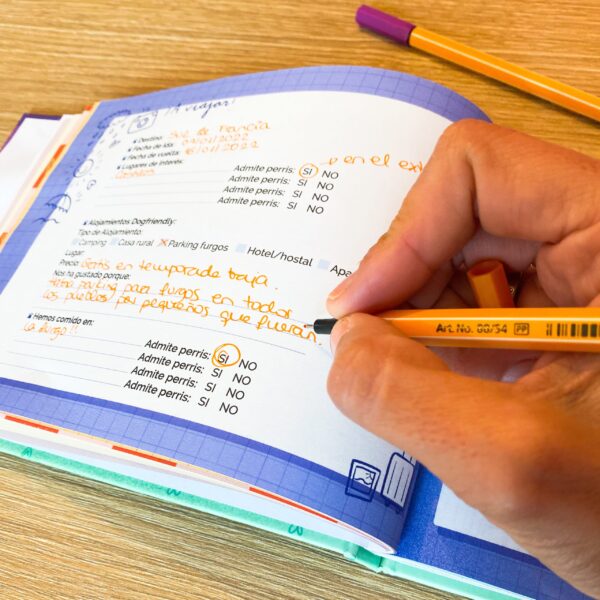 ¡A viajar!
Destino: Sur de Francia
Fecha de ida: 09/01/2022
Fecha de vuelta: 16/01/2022
Lugares de interés:
Admite perris: SI NO → en el ext
Admite perris: SI NO
Admite perris: SI NO
Admite perris: SI NO
Alojamientos Dogfriendly:
Tipo de Alojamiento:
Camping Casa rural X Parking furgos Hotel/hostal Apa
Lugar:
Precio: Gratis en temporada baja.
Nos ha gustado porque:
tenía parking para furgos en todos
los pueblos por pequeños que fueran.
Hemos comido en:
La furgo!!
Admite perris: SI NO
Admite perris: SI NO
Admite perris: SI NO
Admite perris: SI NO
Art. No. 88/54 PP